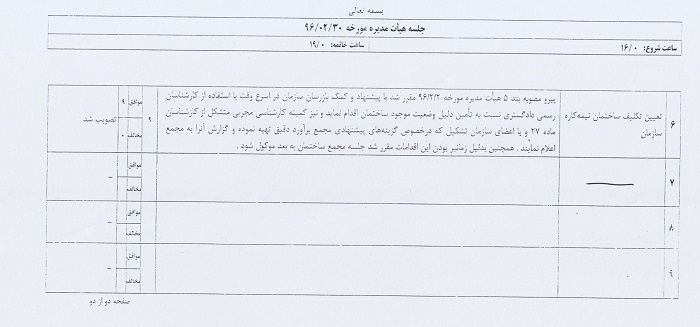 بسمه تعالی
جلسه هیأت مدیره مورخه ۹۶/۰۲/۳۰
ساعت شروع: ۱۶/۰
ساعت خاتمه: ۱۹/۰
۶
تعیین تکلیف ساختمان نیمه‌کاره
سازمان
پیرو مصوبه بند ۵ هیأت مدیره مورخه ۹۶/۲/۲ مقرر شد با پیشنهاد و کمک بازرسان سازمان در اسرع وقت با استفاده از کارشناسان
رسمی دادگستری نسبت به تأمین دلیل وضعیت موجود ساختمان اقدام نماید و نیز کمیته کارشناسی مجربی متشکل از کارشناسان
ماده ۲۷ و یا اعضای سازمان تشکیل که درخصوص گزینه‌های پیشنهادی مجمع برآورد دقیق تهیه نموده و گزارش آنرا به مجمع
اعلام نمایند . همچنین بدلیل زمانبر بودن این اقدامات مقرر شد جلسه مجمع ساختمان به بعد موکول شود .
۹
موافق ۹
مخالف ۰
تصویب شد
۷
موافق
مخالف
–
۸
موافق
مخالف
–
۹
موافق
مخالف
–
صفحه دو از دو